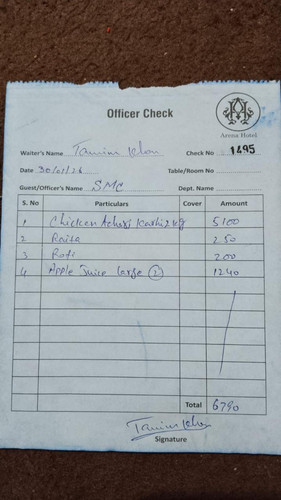 Officer Check
Avenue Hotel
Waiter's Name Tamim Khan Check No 1495
Date 30/01/26 Table/Room No
Guest/Officer's Name SMC Dept. Name
S. No Particulars Cover Amount
1 Chicken Achari Karhi 2 kg 5100
2 Raita 250
3 Roti 200
4 Apple Juice large 2 1240
Total 6790
Tamim Khan
Signature